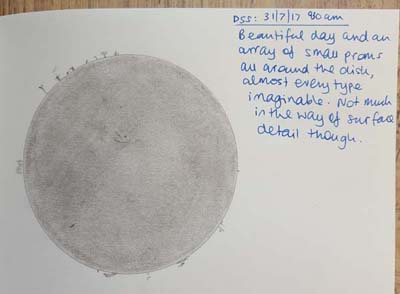 DSS: 31/7/17 980am
Beautiful day and an
array of small proms
all around the disk,
almost every type
imaginable. Not much
in the way of surface
detail though.